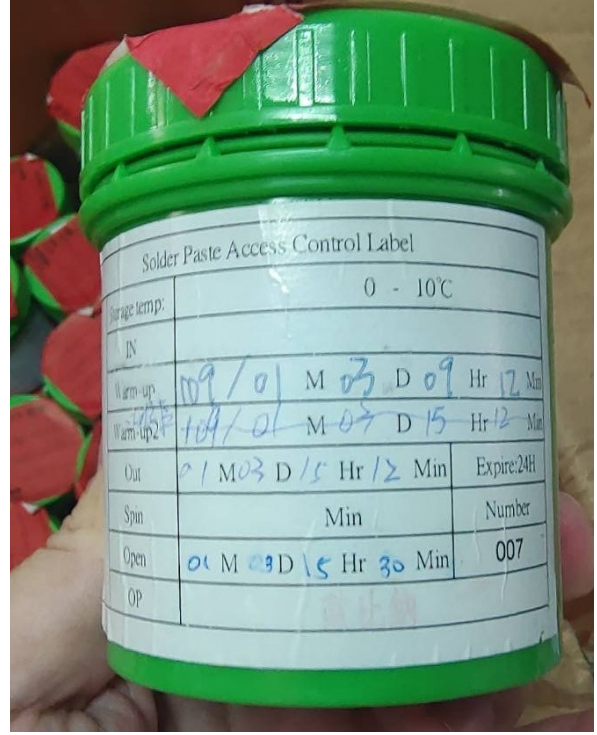 Solder Paste Access Control Label
Storage temp: 0 - 10℃
IN
Warm-up 109/01 M 03 D 09 Hr 12 Min
Warm-up2 109/01 M 03 D 15 Hr 12 Min
Out 01 M 03 D 15 Hr 12 Min Expire:24H
Spin Min Number
Open 01 M 03 D 15 Hr 30 Min 007
OP